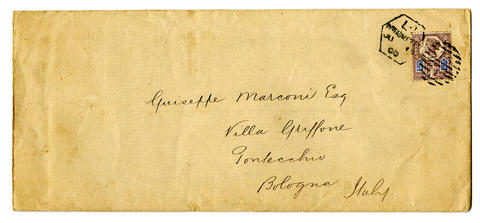 Guiseppe Marconi Esq
Villa Griffone
Pontecchio
Bologna Italy